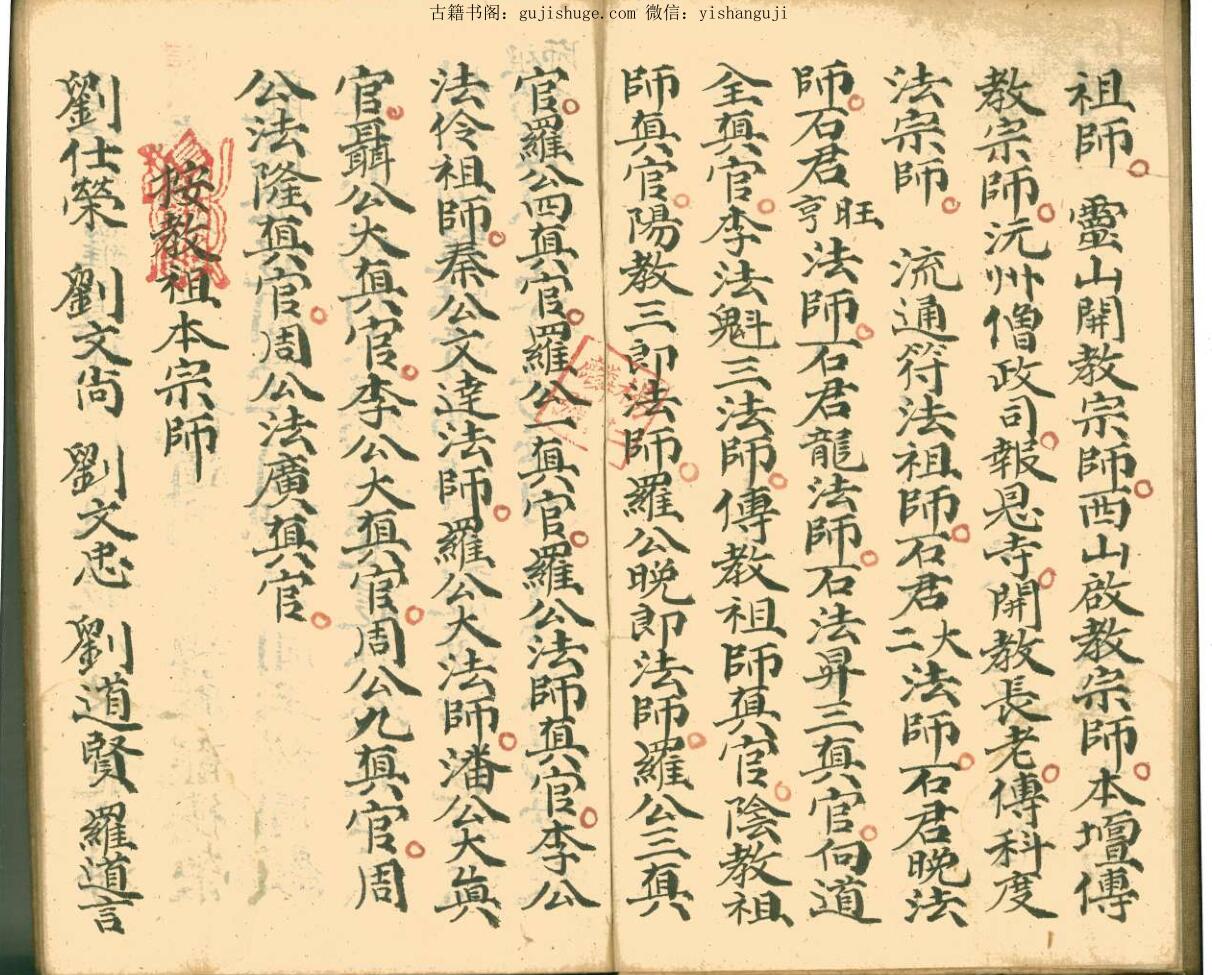 古籍书阁：gujishuge.com 微信：yishanguji
祖師。靈山開教宗師。西山啟教宗師。本壇傳
教宗師。沅州僧政司。報恩寺。開教長老。傳科度
法宗師。流通符法祖師。石君大二法師。石君晚法
師。石君旺亨法師。石君龍法師。石法昇三真官。向道
全真官。李法魁三法師。傳教祖師真官。陰教祖
師真官。陽教三郎法師。羅公晚郎法師。羅公三真
官。羅公四真官。羅公一真官。羅公法師真官。李公
法伶祖師。秦公文達法師。羅公大法師。潘公大真
官。聶公大真官。李公大真官。周公九真官。周
公法隆真官。周公法廣真官。
按教祖本宗師
劉仕榮 劉文尚 劉文忠 劉道賢 羅道言